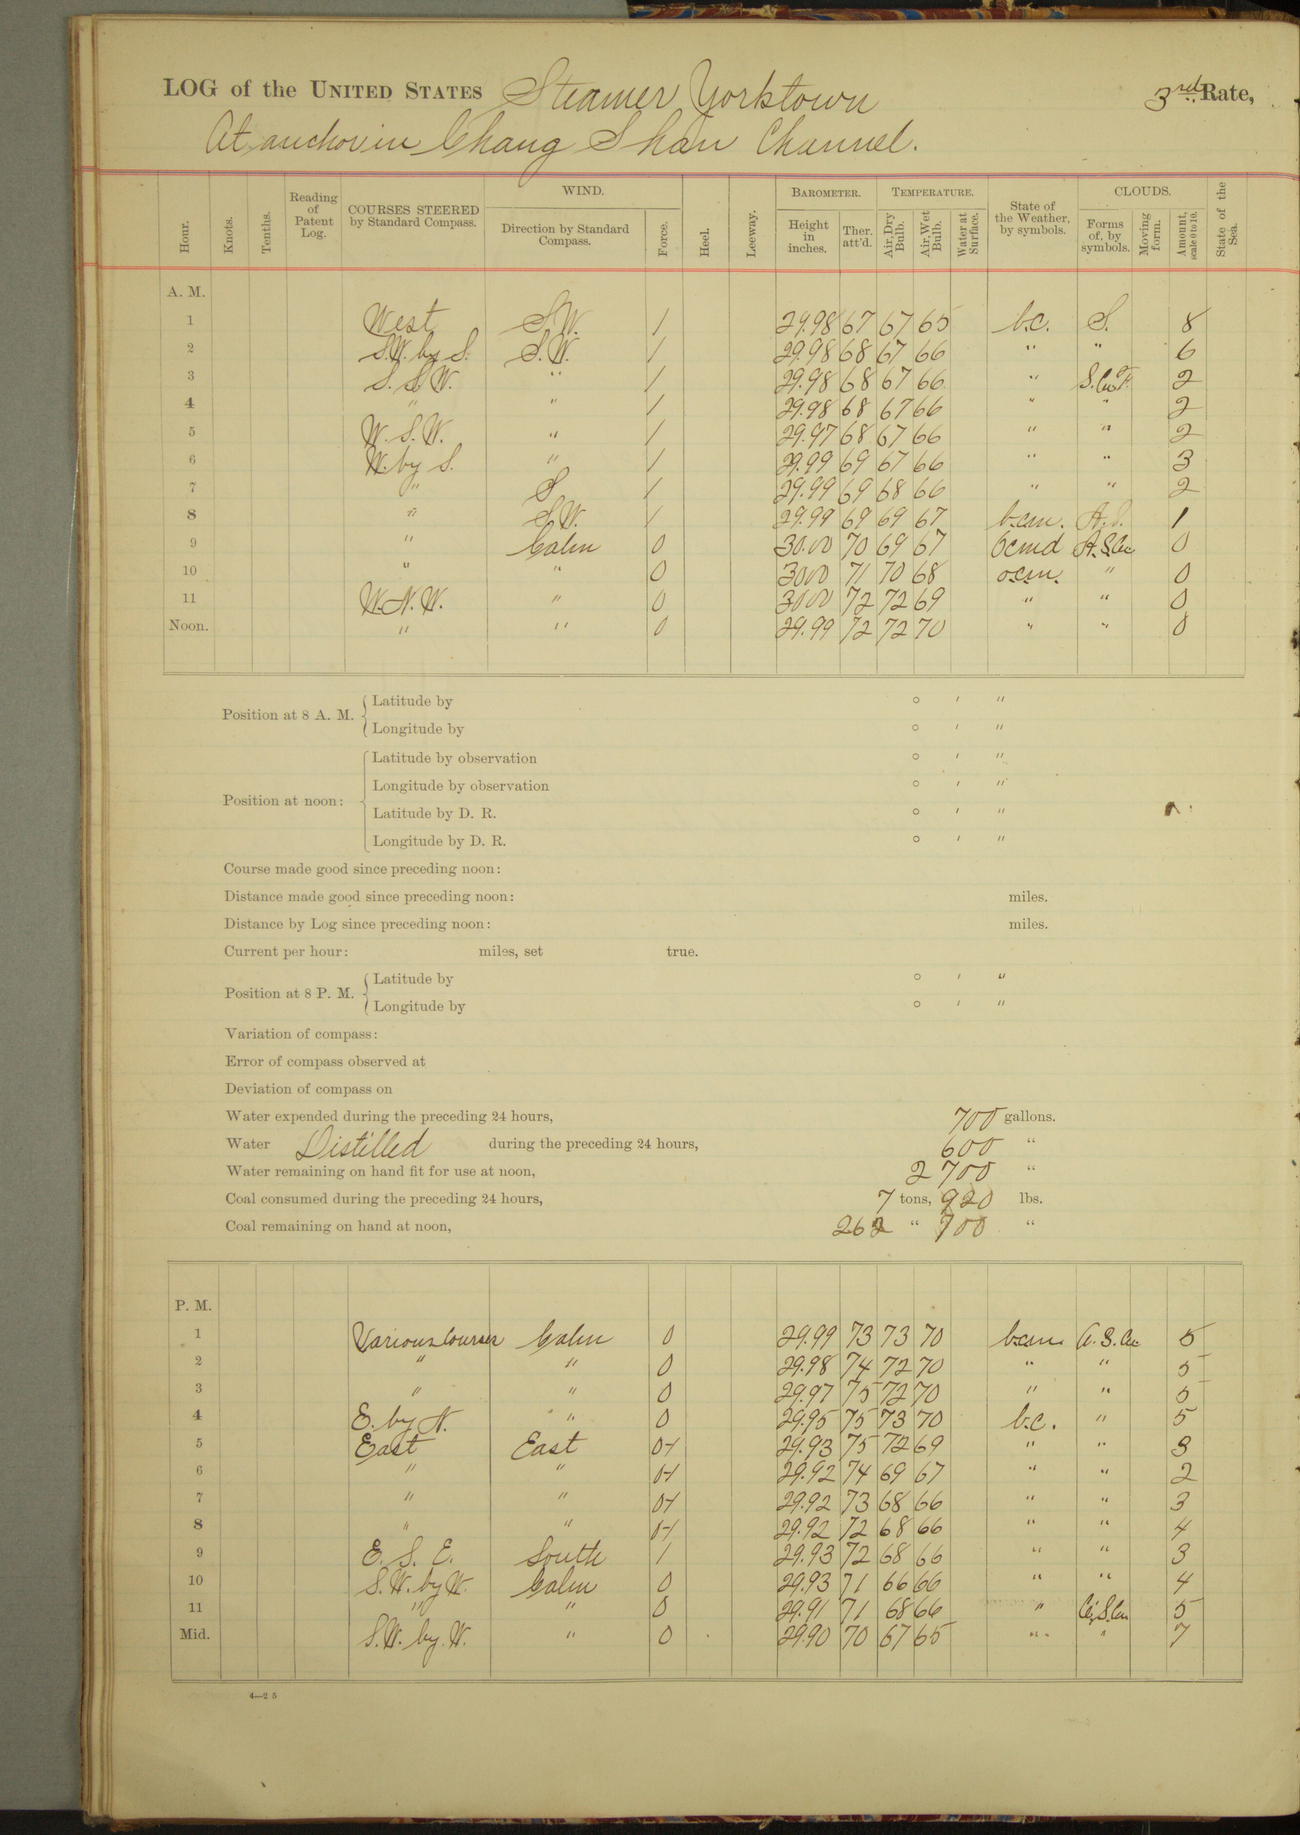 LOG of the UNITED STATES Steamer Yorktown 3rd Rate,
At anchor in Chang Shan Channel.
Hour. Knots. Tenths. Reading of Patent Log. COURSES STEERED by Standard Compass. WIND. Direction by Standard Compass. Force. Heel. Leeway. BAROMETER. Height in inches. Ther. att'd. TEMPERATURE. Air, Dry Bulb. Air, Wet Bulb. Water at Surface. State of the Weather, by symbols. CLOUDS. Forms of, by symbols. Moving form. Amount, scale 0 to 10. State of the Sea.
A. M.
1 West S.W. 1 29.98 67 67 65 b.c. S. 8
2 S.W. by S. S.W. 1 29.98 68 67 66 " " 6
3 S. S. W. " 1 29.98 68 67 66 " S. Cu. 2
4 " " 1 29.98 68 67 66 " " 2
5 W. S. W. " 1 29.97 68 67 66 " " 2
6 W. by S. " 1 29.99 69 67 66 " " 3
7 " S 1 29.99 69 68 66 " " 2
8 " S.W. 1 29.99 69 69 67 b.c.m. A.S. 1
9 " Calm 0 30.00 70 69 67 bcmd A.S.Cu 0
10 " " 0 3000 71 70 68 o.c.m. " 0
11 W. N. W. " 0 3000 72 72 69 " " 0
Noon. " " 0 29.99 72 72 70 " " 0
Position at 8 A. M. Latitude by ° ′ ″
Longitude by ° ′ ″
Position at noon: Latitude by observation ° ′ ″
Longitude by observation ° ′ ″
Latitude by D. R. ° ′ ″
Longitude by D. R. ° ′ ″
Course made good since preceding noon:
Distance made good since preceding noon: miles.
Distance by Log since preceding noon: miles.
Current per hour: miles, set true.
Position at 8 P. M. Latitude by ° ′ ″
Longitude by ° ′ ″
Variation of compass:
Error of compass observed at
Deviation of compass on
Water expended during the preceding 24 hours, 700 gallons.
Water Distilled during the preceding 24 hours, 600 "
Water remaining on hand fit for use at noon, 2 700 "
Coal consumed during the preceding 24 hours, 7 tons, 920 lbs.
Coal remaining on hand at noon, 262 " 700 "
P. M.
1 Various Courses Calm 0 29.99 73 73 70 b.c.m. A. S. Cu 5
2 " " 0 29.98 74 72 70 " " 5
3 " " 0 29.97 75 72 70 " " 5
4 E. by N. " 0 29.95 75 73 70 b.c. " 5
5 East East 0-1 29.93 75 72 69 " " 3
6 " " 0-1 29.92 74 69 67 " " 2
7 " " 0-1 29.92 73 68 66 " " 3
8 " " 0-1 29.92 72 68 66 " " 4
9 E. S. E. South 1 29.93 72 68 66 " " 3
10 S.W. by W. Calm 0 29.93 71 66 66 " " 4
11 " " 0 29.91 71 68 66 " Ci.S.Cu 5
Mid. S.W. by W. " 0 29.90 70 67 65 " " 7
4—2 5